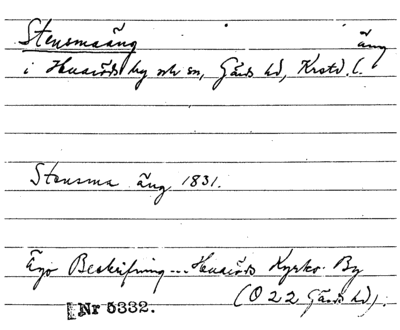 Stensmaäng äng
i Huaröds by och sn, Gärds hd, Krstd. l.
Stensma äng 1831.
Ägo Beskrifning... Huaröds Kyrko By
(O 22 Gärds hd).
Nr 5332.